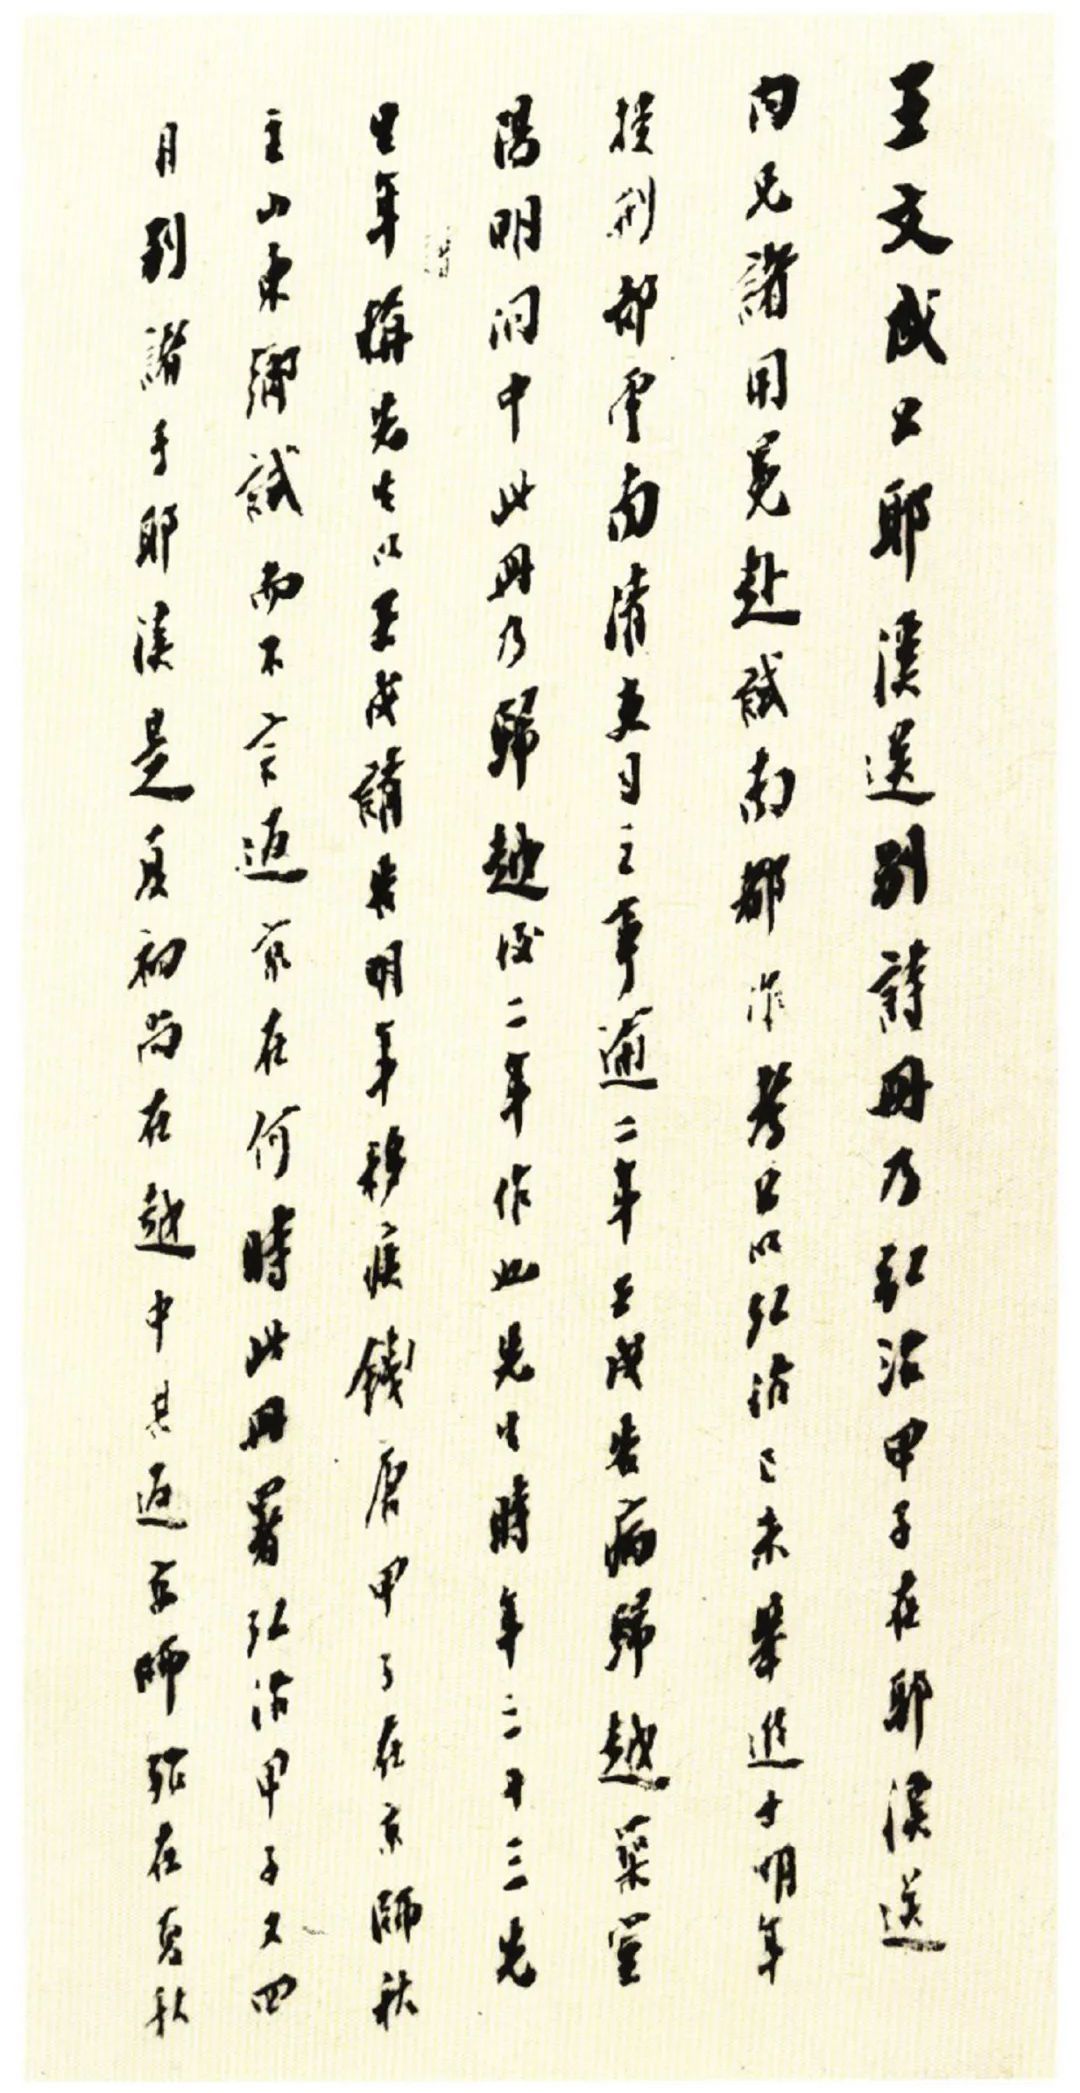 王文成公耶溪送別詩冊乃弘治甲子在耶溪送
內兄諸用冕赴試南都作考公以弘治己未舉進士明年
授刑部雲南清吏司主事逾二年壬戌告病歸越築室
陽明洞中此冊乃歸越後二年作也先生時年三十三先
生年構先生以壬戌請告明年移疾錢唐甲子在京師秋
主山東鄉試而不言返京在何時此冊署弘治甲子又四
月別諸于耶溪是夏初尚在越中其返京師張在夏秋